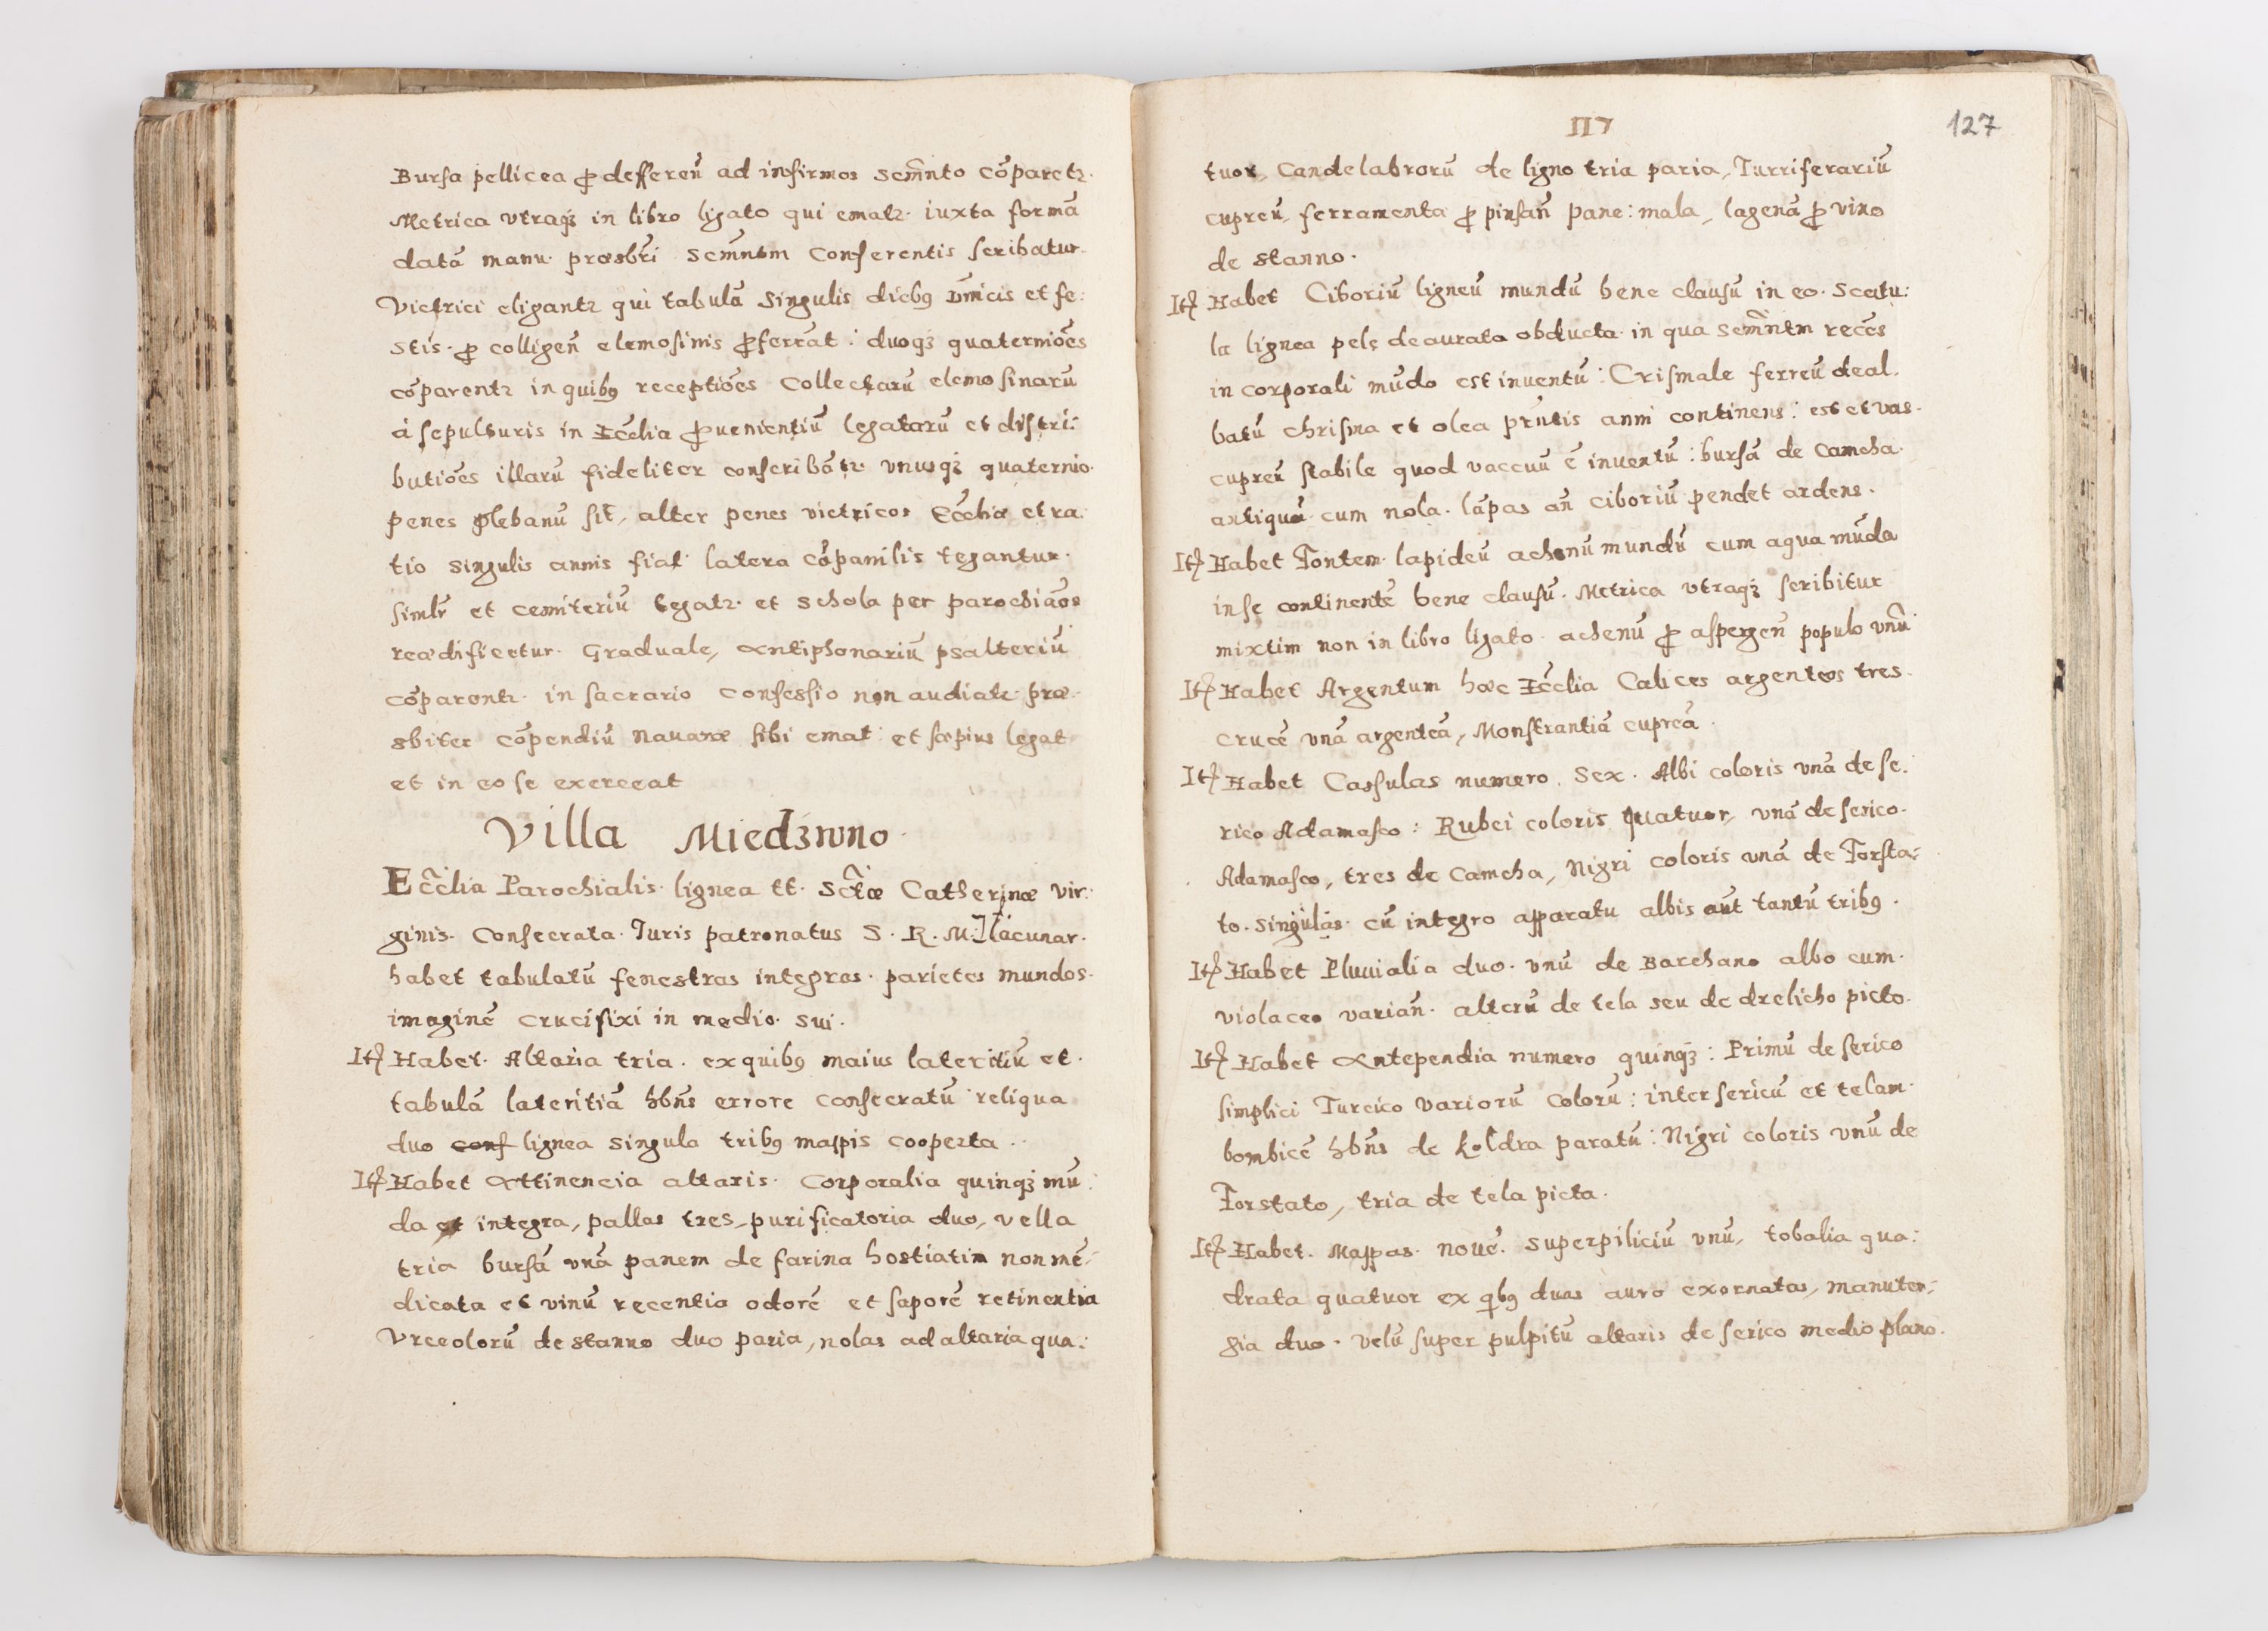 Bursa pellicea ꝓ defferen̄ ad infirmos Scm̄nto cōparetr.
Metrica vtraqꝫ in libro ligato qui ematr. iuxta formā
datā manu. præsbr̄i Scm̄ntm Conferentis scribatur.
Victrici eligantr qui tabulā Singulis diebꝰ Dn̄icis et fe:
stis. ꝓ colligen̄ elemosinis ꝓferrāt: duoqꝫ quaterniōēs
cōparentr in quibꝰ receptiōēs Collectarū elemosinarū
á sepulturis in Ecc̄lia ꝓuenientiū legatarū et distri:
butiōēs illarū fideliter conscribātr. vnusqꝫ quaternio.
penes plebanū sit̄, alter penes victricos Ecc̄liæ et ra.
tio Singulis annis fiat latera Cōpanilis tegantur.
simlr̄ et Cemiteriū tegatr. et Schola per parochiāōs
reædificetur. Graduale, Antiphonariū psalteriū
cōparentr. in sacrario Confessio non audiatr. præ.
sbiter cōpendiū Nauaræ sibi emat: et sæpius legat
et in eo se exerceat
Villa Miedzwno.
Ecc̄lia Parochialis. lignea tt. Sctǣ Catherinæ Vir:
ginis. Consecrata. Iuris patronatus S. R. M. Lacunar.
habet tabulatū fenestras integras. parietes mundos.
imaginē Crucifixi in medio. Sui.
It̄ Habet. Altaria tria. ex quibꝰ maius lateritiū et.
tabulā lateritiā hbn̄s errore Consecratū reliqua
duo conf lignea Singula tribꝰ mappis cooperta.
It̄ Habet Attinencia altaris. Corporalia quinqꝫ mū:
da et integra, pallas tres, purificatoria duo, vella
tria bursā vnā panem de farina hostiatim non mē:
dicata et vinū recentia odorē et saporē retinentia
Vrceolorū de stanno duo paria, nolas ad altaria qua:
117
127
tuor, Candelabrorū de ligno tria paria, Turriferariū
cupreū, ferramenta ꝓ pinsan̄ pane: mala, lagenā ꝓ vino
de stanno.
It̄ Habet Ciboriū ligneū mundū bene clausū in eo. Scatu:
la lignea pelę deaurata obducta. in qua Scm̄ntm recēs
in corporali mūdo est inuentū: Crismale ferreū deal.
batū chrisma et olea prn̄tis anni continens: est et vas.
cupreū stabile quod vaccuū ē inuentū: bursā de Camcha.
antiquā. cum nola. lāpas an̄ Ciboriū pendet ardens.
It̄ Habet Fontem. lapideū achenū mundū cum aqua mūda
in se continentē bene clausū. Metrica vtraqꝫ scribitur
mixtim non in libro ligato. achenū ꝓ aspergen̄ populo vnū
It̄ Habet Argentum hæc Ecc̄lia Calices argenteos tres.
Crucē vnā argenteā, Monstrantiā cupreā.
It̄ Habet Cassulas numero. Sex. Albi coloris vnā de se:
rico Adamasco: Rubei coloris quatuor, vnā de serico.
Adamasco, tres de Camcha, Nigri coloris vnā de Forsta:
to. Singulas. cū integro apparatu albis aūt tantū tribꝰ.
It̄ Habet Pluuialia duo. vnū de Barchano albo cum.
violaceo varian̄. alterū de tela seu de drelicho picto.
It̄ Habet Antependia numero quinqꝫ: Primū de serico
simplici Turcico variorū Colorū: inter sericū et telam.
bombicē hbn̄s de koldra paratū: Nigri coloris vnū de
Forstato, tria de tela picta.
It̄ Habet. Mappas. nouē. Superpiliciū vnū, tobalia qua:
drata quatuor ex qibꝰ duas auro exornatas, manuter:
gia duo. velū super pulpitū altaris de serico medio plano.